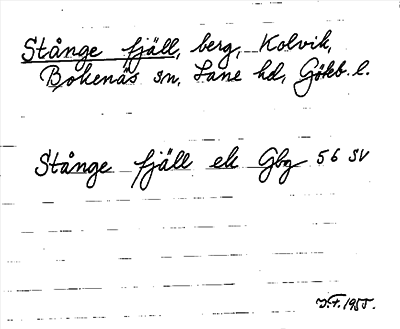 Stånge fjäll, berg, Kolvik,
Bokenäs sn, Lane hd, Gökb. l.
Stånge fjäll ek Gbg 56 SV
I.F. 1955.